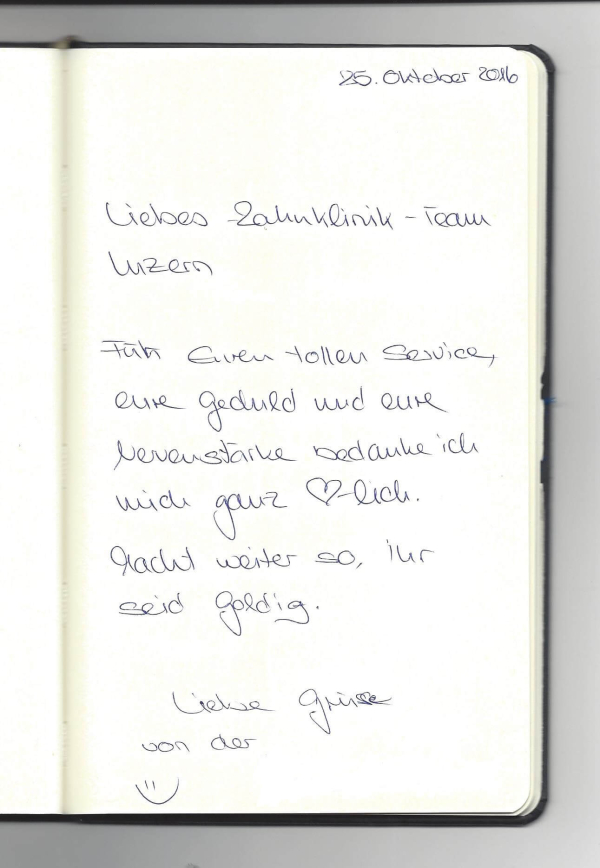 25. Oktober 2016
Liebes Zahnklinik-Team
Luzern
Für Euren tollen Service,
eure Geduld und eure
Nervenstärke bedanke ich
mich ganz ♡-lich.
Macht weiter so, ihr
seid goldig.
Liebe Grüsse
von der